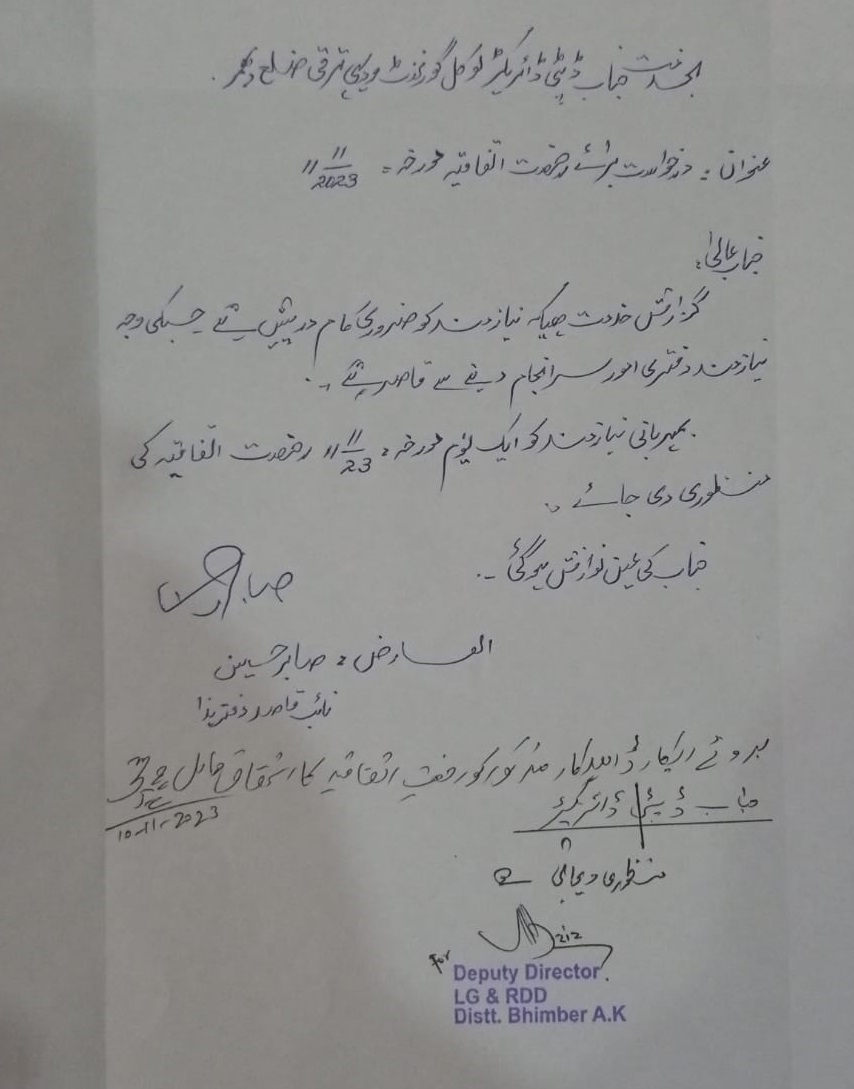 بخدمت جناب ڈپٹی ڈائریکٹر لوکل گورنمنٹ و دیہی ترقی ضلع بھمبر۔
عنوان: درخواست برائے رخصت اتفاقیہ مورخہ: 11/11/2023
جناب عالیٰ!
گزارش خدمت ھیکہ نیازمند کو ضروری کام درپیش ہے جسکی وجہ
نیازمند دفتری امور سرانجام دینے سے قاصر ہے۔
بمہربانی نیازمند کو ایک یوم مورخہ: 11/11/23 رخصت اتفاقیہ کی
منظوری دی جائے۔
جناب کی عین نوازش ہوگی۔
صابر
العارض: صابر حسین
نائب قاصد دفتر ہذا
بروئے ریکارڈ اہلکار مذکور کو رخصت اتفاقیہ کا استحقاق حاصل ہے
10-11-2023
جناب ڈپٹی ڈائریکٹر
منظوری دیجاتی ہے
for
Deputy Director
LG & RDD
Distt. Bhimber A.K